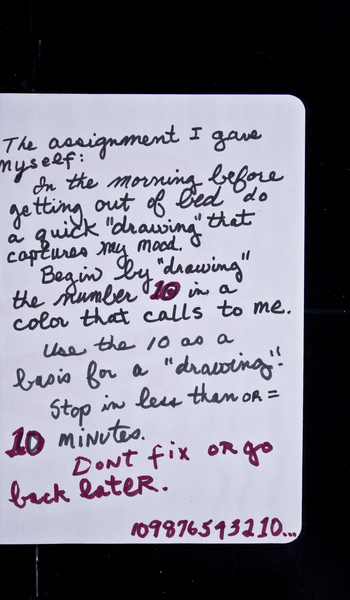 The assignment I gave
myself:
In the morning before
getting out of bed do
a quick "drawing" that
captures my mood.
Begin by "drawing"
the number 10 in a
color that calls to me.
Use the 10 as a
basis for a "drawing".
Stop in less than OR =
10 minutes.
Dont fix OR go
back later.
109876543210...